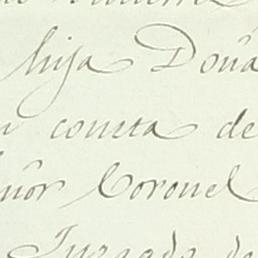 hija Doña
consta de
ñor Coronel
Juzgado de